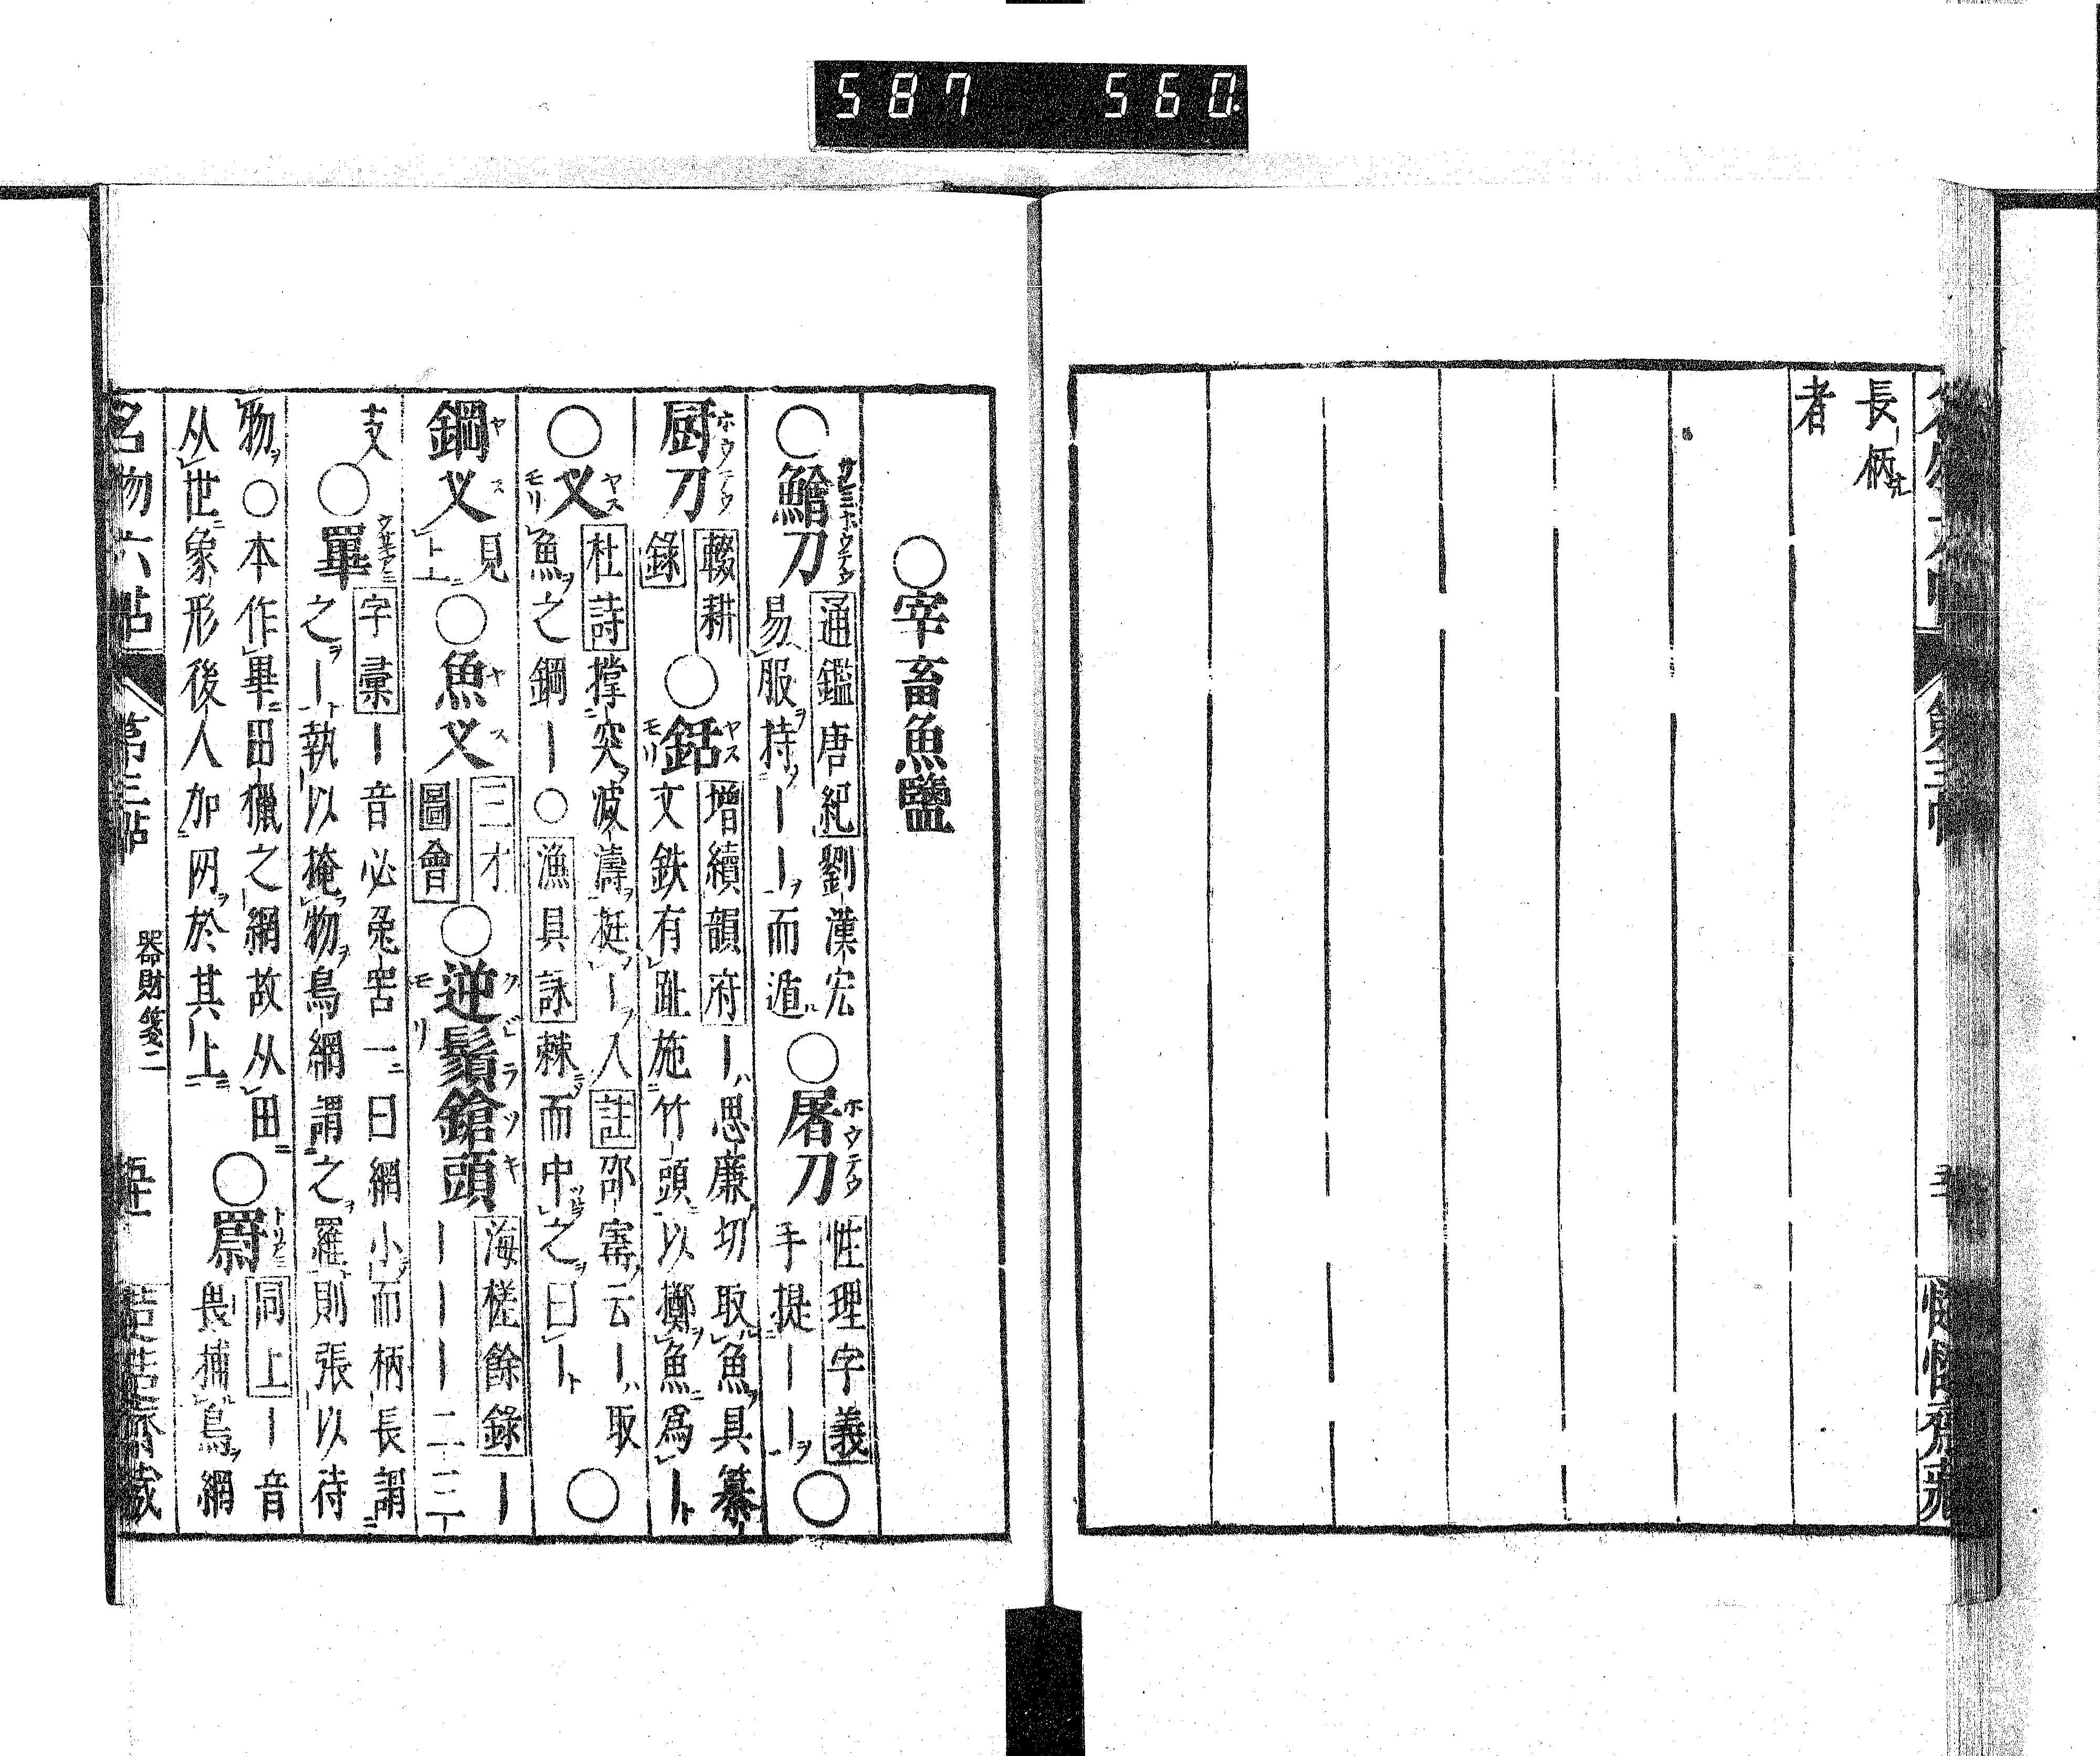 587 560
長柄
者
○宰畜魚鹽
○鱠刀 通鑑唐紀劉漢宏
易服持｜｜而遁 ○屠刀 性理字義
手提｜｜ ○
厨刀 輟耕
錄 ○銛 増續韻府｜思廉切取魚具纂
文鉄有距施竹頭以擲魚爲｜
○叉 杜詩撑突波濤挺｜入註邵寗云｜取
魚之鋼｜○漁具詠棘而中之曰｜ ○
鋼叉 見
上 ○魚叉 三才
圖會 ○逆鬚鎗頭 海槎餘錄｜
｜｜｜二三丁
支 ○罼 字彙｜音必兔罟一曰網小而柄長謂
之｜執以掩物鳥網謂之羅則張以待
物○本作畢田獵之網故从田
从世象形後人加网於其上 ○罻 同上｜音
畏捕鳥網
名物六帖 第三帖 器財箋二